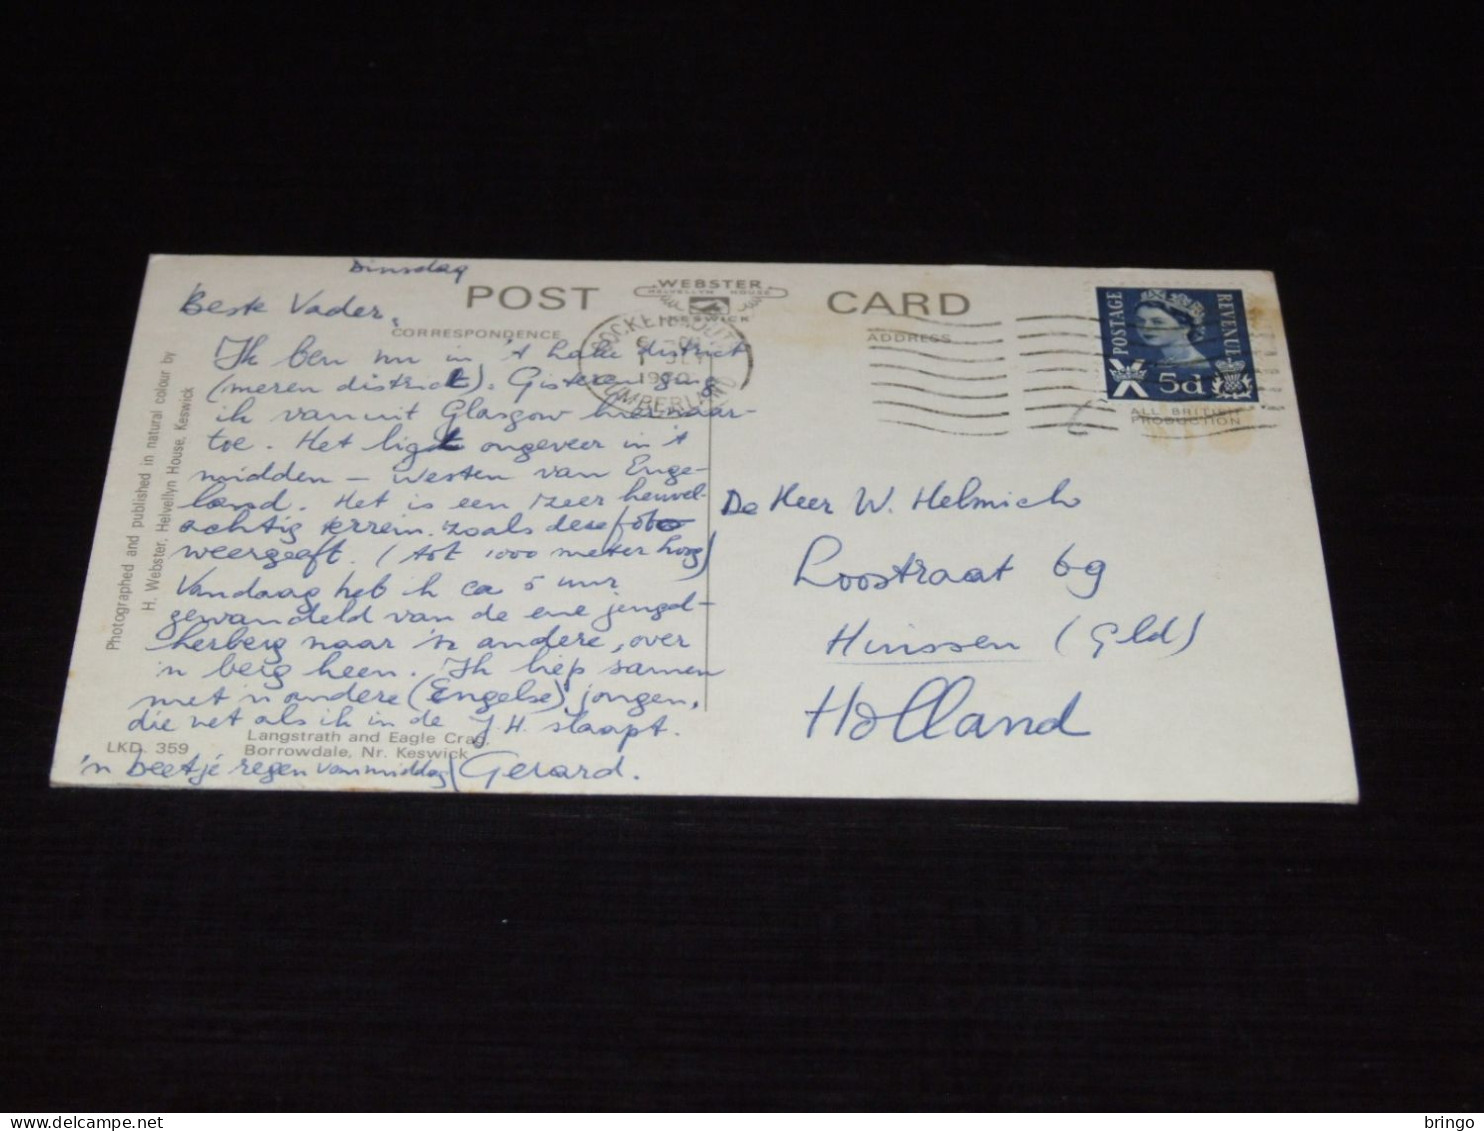 Dinsdag
Beste Vader,
Ik ben nu in 't lake district
(meren district). Gisteren ging
ik vanuit Glasgow hiernaar-
toe. Het ligt ongeveer in 't
midden - westen van Enge-
land. Het is een zeer heuvel-
achtig terrein zoals deze foto
weergeeft. (tot 1000 meter hoog)
Vandaag heb ik ca 5 uur
gewandeld van de ene jeugd-
herberg naar 'n andere, over
'n berg heen. Ik liep samen
met 'n andere (Engelse) jongen,
die net als ik in de J.H. slaapt.
'n beetje regen vanmiddag / Gerard.
POST CARD
WEBSTER
HELVELLYN HOUSE
KESWICK
CORRESPONDENCE
ADDRESS
COCKERMOUTH
1970
CUMBERLAND
POSTAGE
REVENUE
5d
ALL BRITISH
PRODUCTION
De Heer W. Helmich
Loostraat 69
Huissen (Gld)
Holland
Photographed and published in natural colour by
H. Webster, Helvellyn House, Keswick
LKD. 359
Langstrath and Eagle Crag,
Borrowdale, Nr. Keswick
bringo